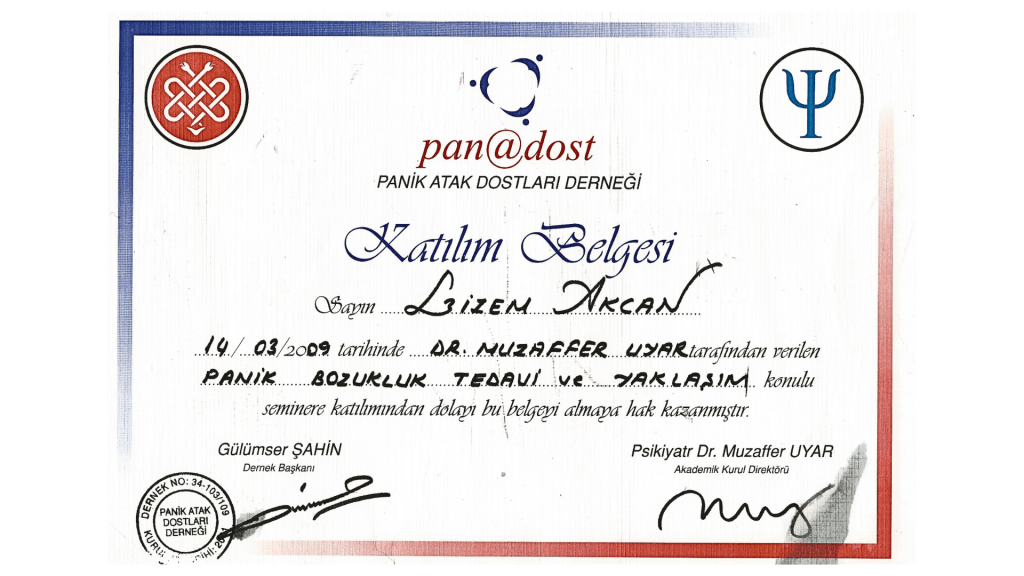 pan@dost
PANİK ATAK DOSTLARI DERNEĞİ
Katılım Belgesi
Sayın GİZEM AKCAN
14/03/2009 tarihinde DR. MUZAFFER UYAR tarafından verilen
PANİK BOZUKLUK TEDAVİ ve YAKLAŞIM konulu
seminere katılımından dolayı bu belgeyi almaya hak kazanmıştır.
Gülümser ŞAHİN
Dernek Başkanı
Psikiyatr Dr. Muzaffer UYAR
Akademik Kurul Direktörü
DERNEK NO: 34-103/109
PANİK ATAK
DOSTLARI
DERNEĞİ